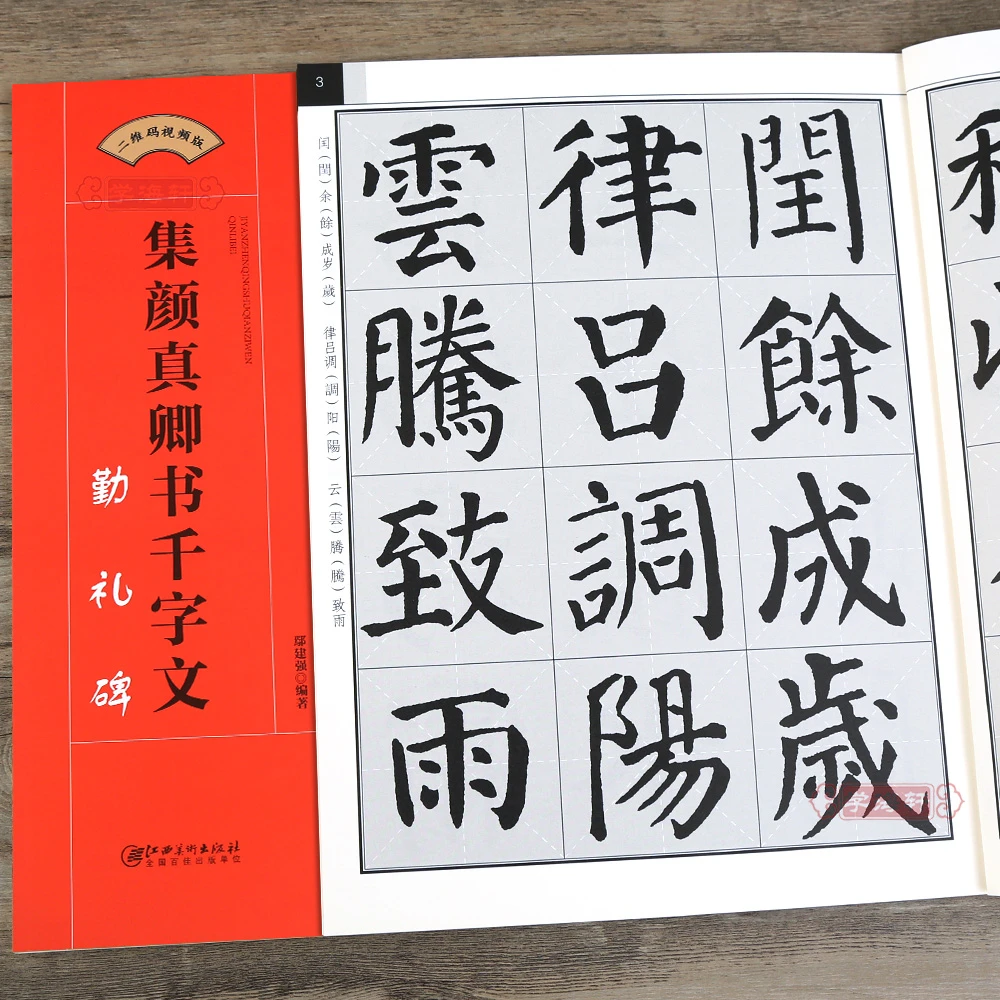 二维码视频版
学海轩
集颜真卿书千字文
JIYANZHENQINGSHUQIANZIWEN
QINLIBEI
勤礼碑
鄢建强◎编著
江西美术出版社
全国百佳出版单位
3
闰(閏)余(餘)成岁(歲) 律吕调(調)阳(陽) 云(雲)腾(騰)致雨
閏餘成歲
律呂調陽
雲騰致雨
学海轩